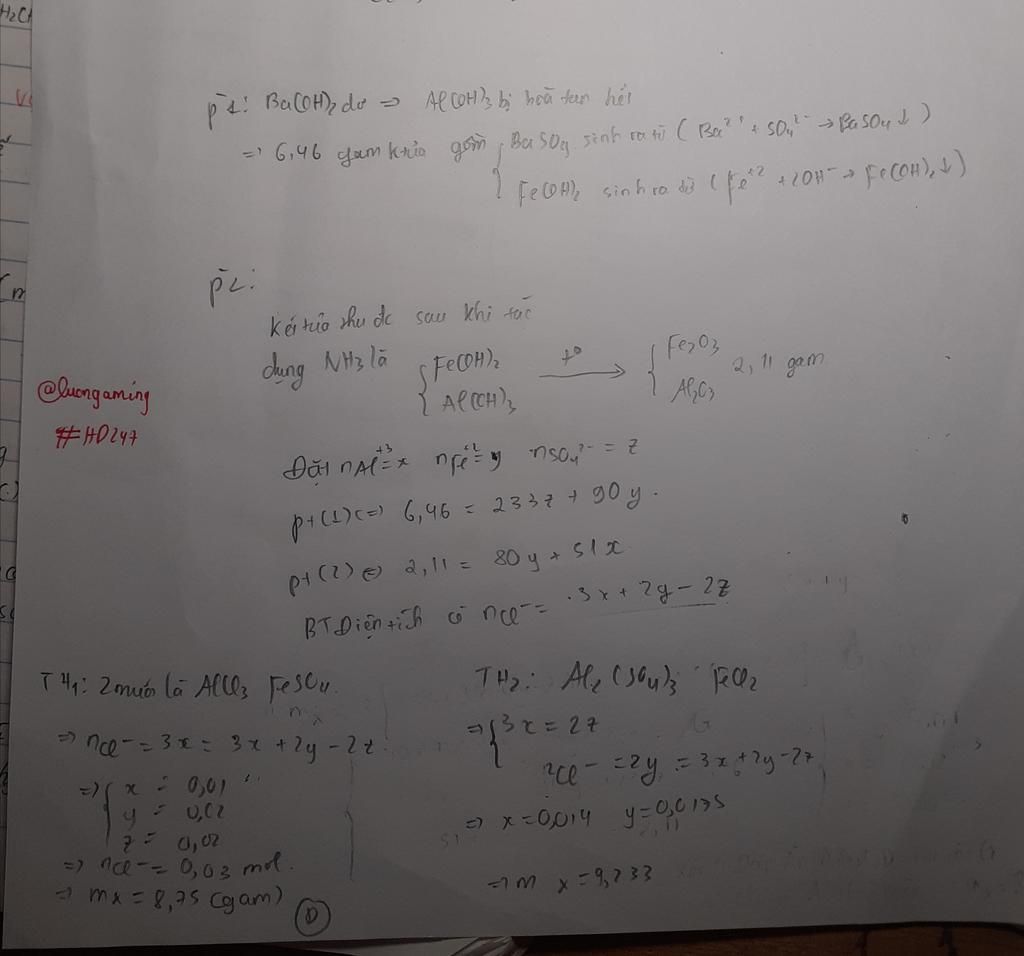 H2Cl
p~1: Ba(OH)2 dư => Al(OH)3 bị hoà tan hết
=> 6,46 gam ktủa gồm { BaSO4 sinh ra từ ( Ba2+ + SO4 2- → BaSO4↓ )
Fe(OH)2 sinh ra từ ( Fe+2 + 2OH- → Fe(OH)2↓ )
p~2:
Kết tủa thu đc sau khi tác
dụng NH3 là { Fe(OH)2 Al(OH)3 —t°→ { Fe2O3 Al2O3 2,11 gam
@luongaming
#HD247
Đặt nAl+3 = x nFe+2 = y nSO4 2- = z
pt(1) <=> 6,46 = 233z + 90y.
pt(2) <=> 2,11 = 80y + 51x
BT Điện tích có nCl- = 3x + 2y - 2z
TH1: 2 muối là AlCl3 FeSO4.
=> nCl- = 3x = 3x + 2y - 2z
=> { x = 0,01
y = 0,02
z = 0,02
=> nCl- = 0,03 mol.
=> mx = 8,75 (gam)
D
TH2: Al2(SO4)3 FeCl2
=> { 3x = 2z
nCl- = 2y = 3x + 2y - 2z
=> x = 0,014 y = 0,0135
=> m x = 9,233